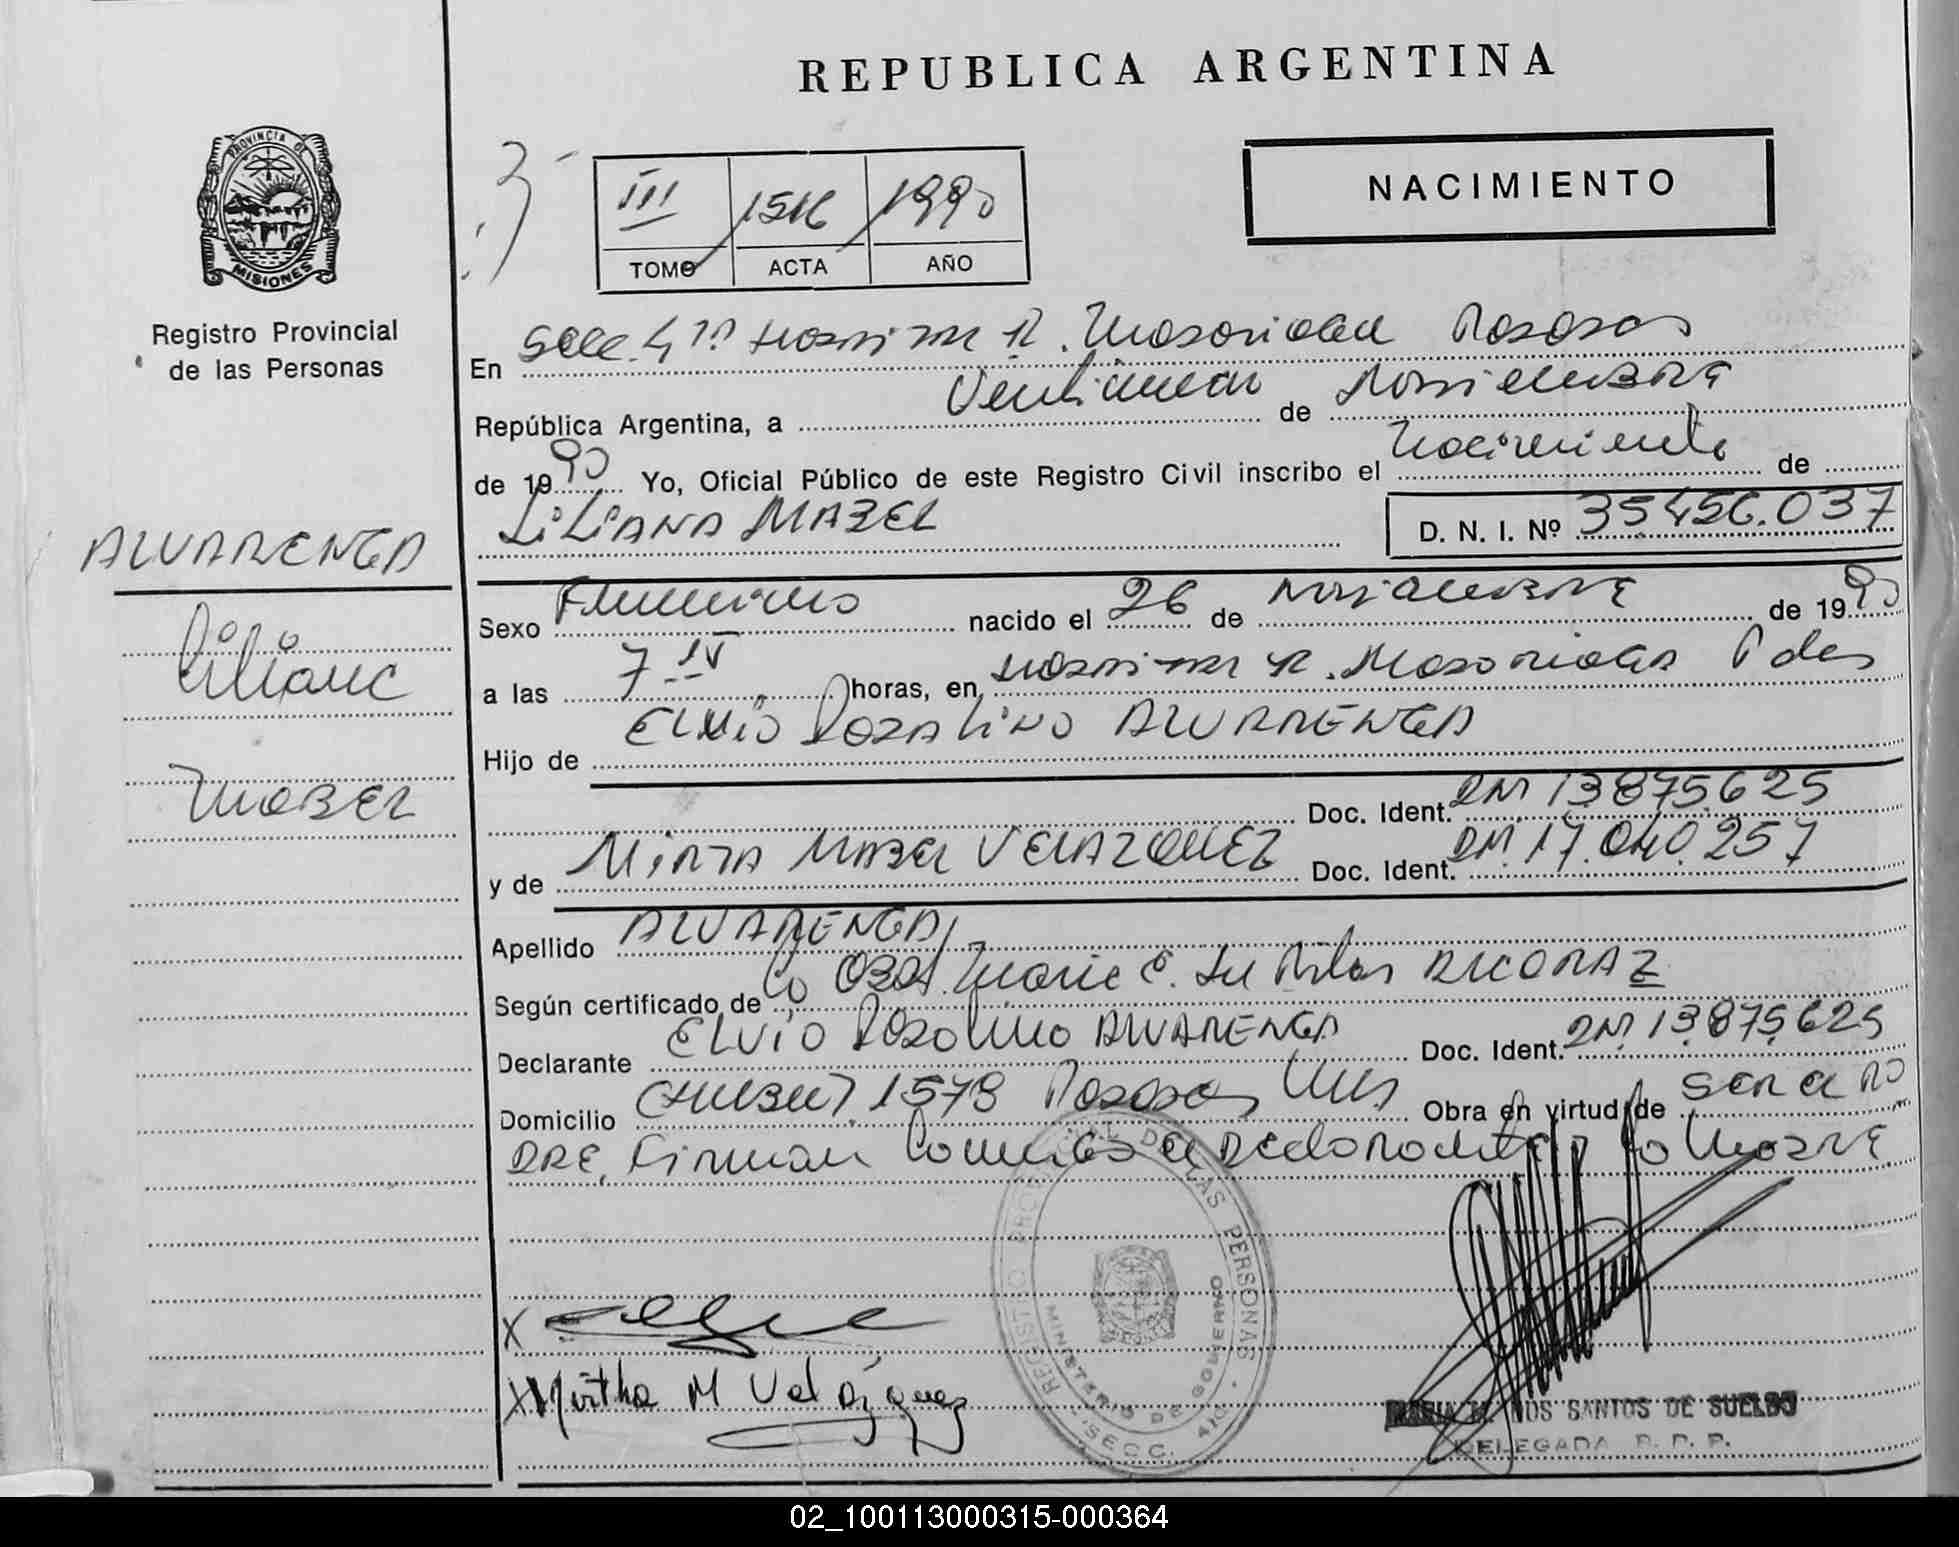 REPUBLICA ARGENTINA
PROVINCIA DE
MISIONES
Registro Provincial
de las Personas
III 1516 1990
TOMO ACTA AÑO
NACIMIENTO
En Secc. 4ta Posadas
República Argentina, a de Noviembre
de 1990 Yo, Oficial Público de este Registro Civil inscribo el Nacimiento de
LiLiANA MABEL D. N. I. Nº 35456.037
ALVARENGA
Liliana
MABEL
Sexo Femenino nacido el 26 de Noviembre de 1990
a las 7 horas, en Pdas
Hijo de ELViO ROZALiNO ALVARENGA
Doc. Ident. DNI 13875625
y de MiRTA MABEL VELAZQUEZ Doc. Ident. DNI. 17.040.257
Apellido ALVARENGA
Según certificado de Obst. Maria E. del Pilar
Declarante ELVIO ROZALINO ALVARENGA Doc. Ident. DNI 13875625
Domicilio CHUBUT 1578 Posadas Mnes Obra en virtud de ser el PA
DRE, Firman el Declarante y la Madre
X
X Mirtha M Velázquez
REGISTRO PROVINCIAL DE LAS PERSONAS
MINISTERIO DE GOBIERNO
SECC. 4ta
MARIA M. DOS SANTOS DE SUELDO
DELEGADA R. P. P.
02_100113000315-000364